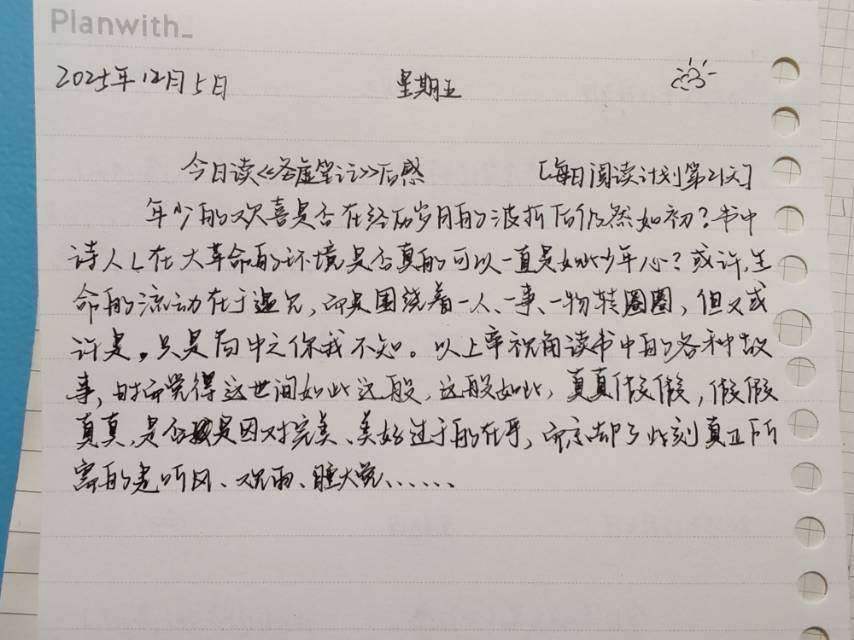 Planwith_
2025年12月5日 星期五
今日读《圣虚笔记》后感 [每日阅读计划第21天]
年少的欢喜是否在经历岁月的波折后仍然如初？书中
诗人L在大革命的环境是否真的可以一直是如此少年心？或许，生
命的流动在于遗忘，而是围绕着一人、一事、一物转圈圈，但又或
许是，只是局中之你我不知。以上帝视角读书中的各种故
事，时而觉得这世间如此这般，这般如此，真真假假，假假
真真，是否是因对完美、美好过于的在乎，而忘却了此刻真正所
需的是听风、观雨、睡大觉......